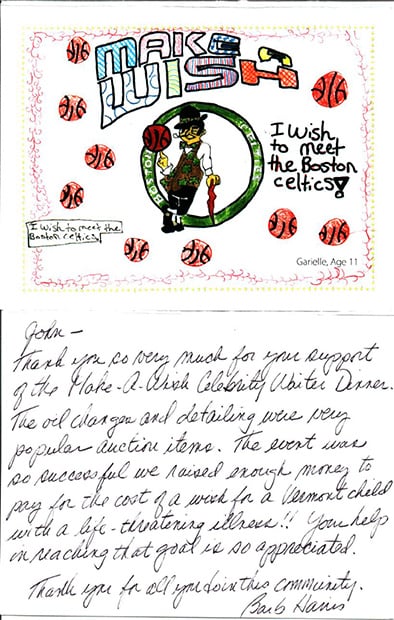 MAKE A
WISH
BOSTON CELTICS
I wish
to meet
the Boston
celtics!
I wish to meet the
Boston celtics
Garielle, Age 11
John –
Thank you so very much for your support
of the Make-A-Wish Celebrity Waiter Dinner.
The oil changes and detailing were very
popular auction items. The event was
so successful we raised enough money to
pay for the cost of a wish for a Vermont child
with a life-threatening illness!! Your help
in reaching that goal is so appreciated.
Thank you for all you do in this community.
Barb Harris